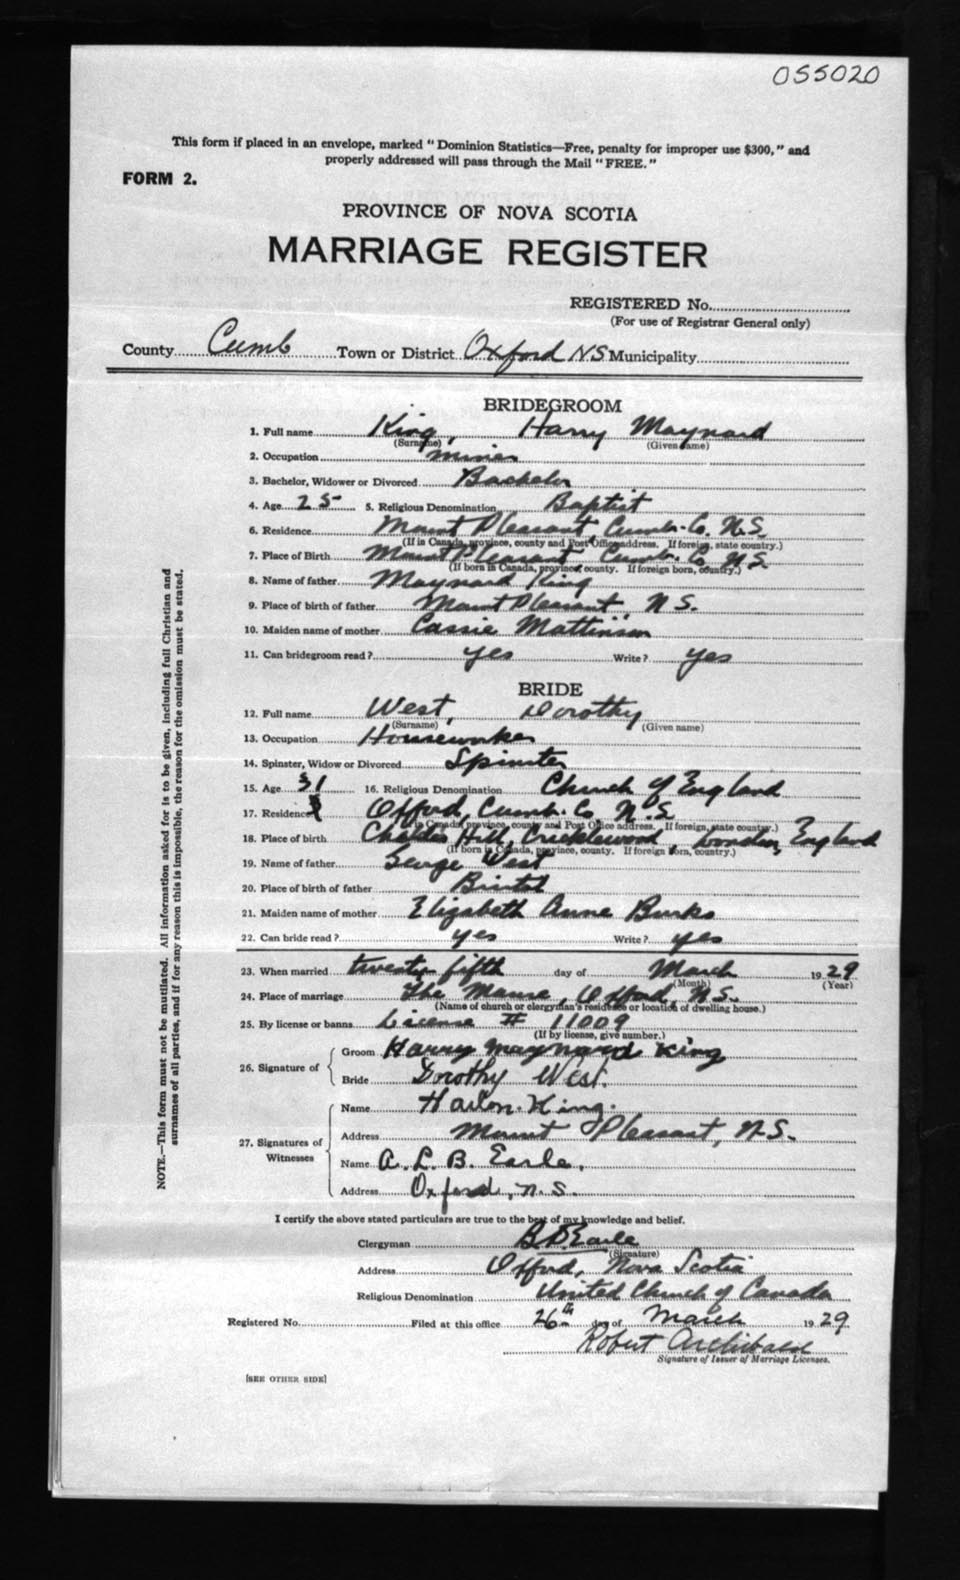 055020
This form if placed in an envelope, marked "Dominion Statistics—Free, penalty for improper use $300," and
properly addressed will pass through the Mail "FREE."
FORM 2.
PROVINCE OF NOVA SCOTIA
MARRIAGE REGISTER
REGISTERED No.
(For use of Registrar General only)
County Cumb Town or District Oxford NS Municipality
BRIDEGROOM
1. Full name King, Harry Maynard
(Surname) (Given name)
2. Occupation miner
3. Bachelor, Widower or Divorced Bachelor
4. Age 25 5. Religious Denomination Baptist
6. Residence Mount Pleasant, Cumb. Co. N.S.
(If in Canada, province, county and Post Office address. If foreign, state country.)
7. Place of Birth Mount Pleasant Cumb. Co N.S.
(If born in Canada, province, county. If foreign born, country.)
8. Name of father Maynard King
9. Place of birth of father Mount Pleasant, N.S.
10. Maiden name of mother Cassie Mattinson
11. Can bridegroom read? yes Write? yes
BRIDE
12. Full name West, Dorothy
(Surname) (Given name)
13. Occupation Houseworker
14. Spinster, Widow or Divorced Spinster
15. Age 31 16. Religious Denomination Church of England
17. Residence Oxford, Cumb. Co. N.S
(If in Canada, province, county and Post Office address. If foreign, state country.)
18. Place of birth Hill, Cricklewood, London, England
(If born in Canada, province, county. If foreign born, country.)
19. Name of father George West
20. Place of birth of father Bristol
21. Maiden name of mother Elizabeth Anne Burks
22. Can bride read? yes Write? yes
23. When married twenty fifth day of March 1929
(Month) (Year)
24. Place of marriage The Manse, Oxford, N.S.
(Name of church or clergyman's residence or location of dwelling house.)
25. By license or banns License # 11009
(If by license, give number.)
26. Signature of Groom Harry Maynard King
Bride Dorothy West.
27. Signatures of Witnesses Name Harlon King.
Address Mount Pleasant, N.S.
Name A. L. B. Earle,
Address Oxford, N.S.
I certify the above stated particulars are true to the best of my knowledge and belief.
Clergyman B D Earle
(Signature)
Address Oxford, Nova Scotia
Religious Denomination United Church of Canada
Registered No. Filed at this office 26th day of March 1929
Robert Archibald
Signature of Issuer of Marriage Licenses.
[SEE OTHER SIDE]
NOTE.—This form must not be mutilated. All information asked for is to be given, including full Christian and
surnames of all parties, and if for any reason this is impossible, the reason for the omission must be stated.